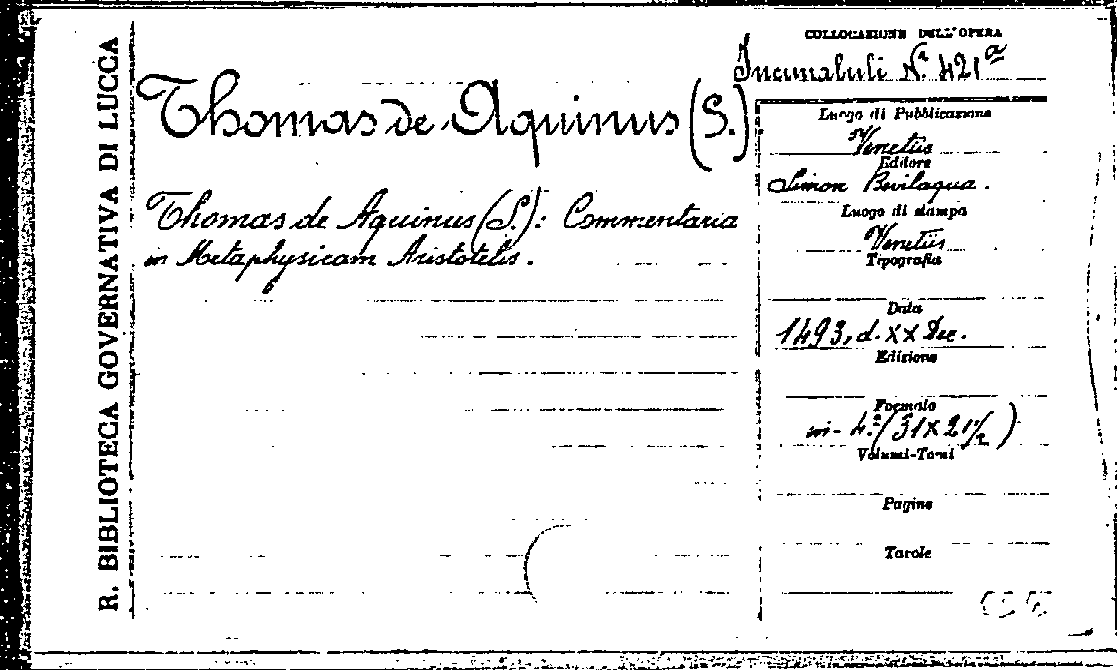 R. BIBLIOTECA GOVERNATIVA DI LUCCA
Thomas de Aquinus (S.)
Thomas de Aquinus (S.): Commentaria
in Metaphysicam Aristotelis.
COLLOCAZIONE DELL'OPERA
Incunabuli N.º 421ª
Luogo di Pubblicazione
Venetiis
Editore
Simon Bevilaqua.
Luogo di stampa
Venetiis
Tipografia
Data
1493, d. XX Dec.
Edizione
Formato
in-4.º (31 x 21 1/2)
Volumi-Tomi
Pagine
Tavole